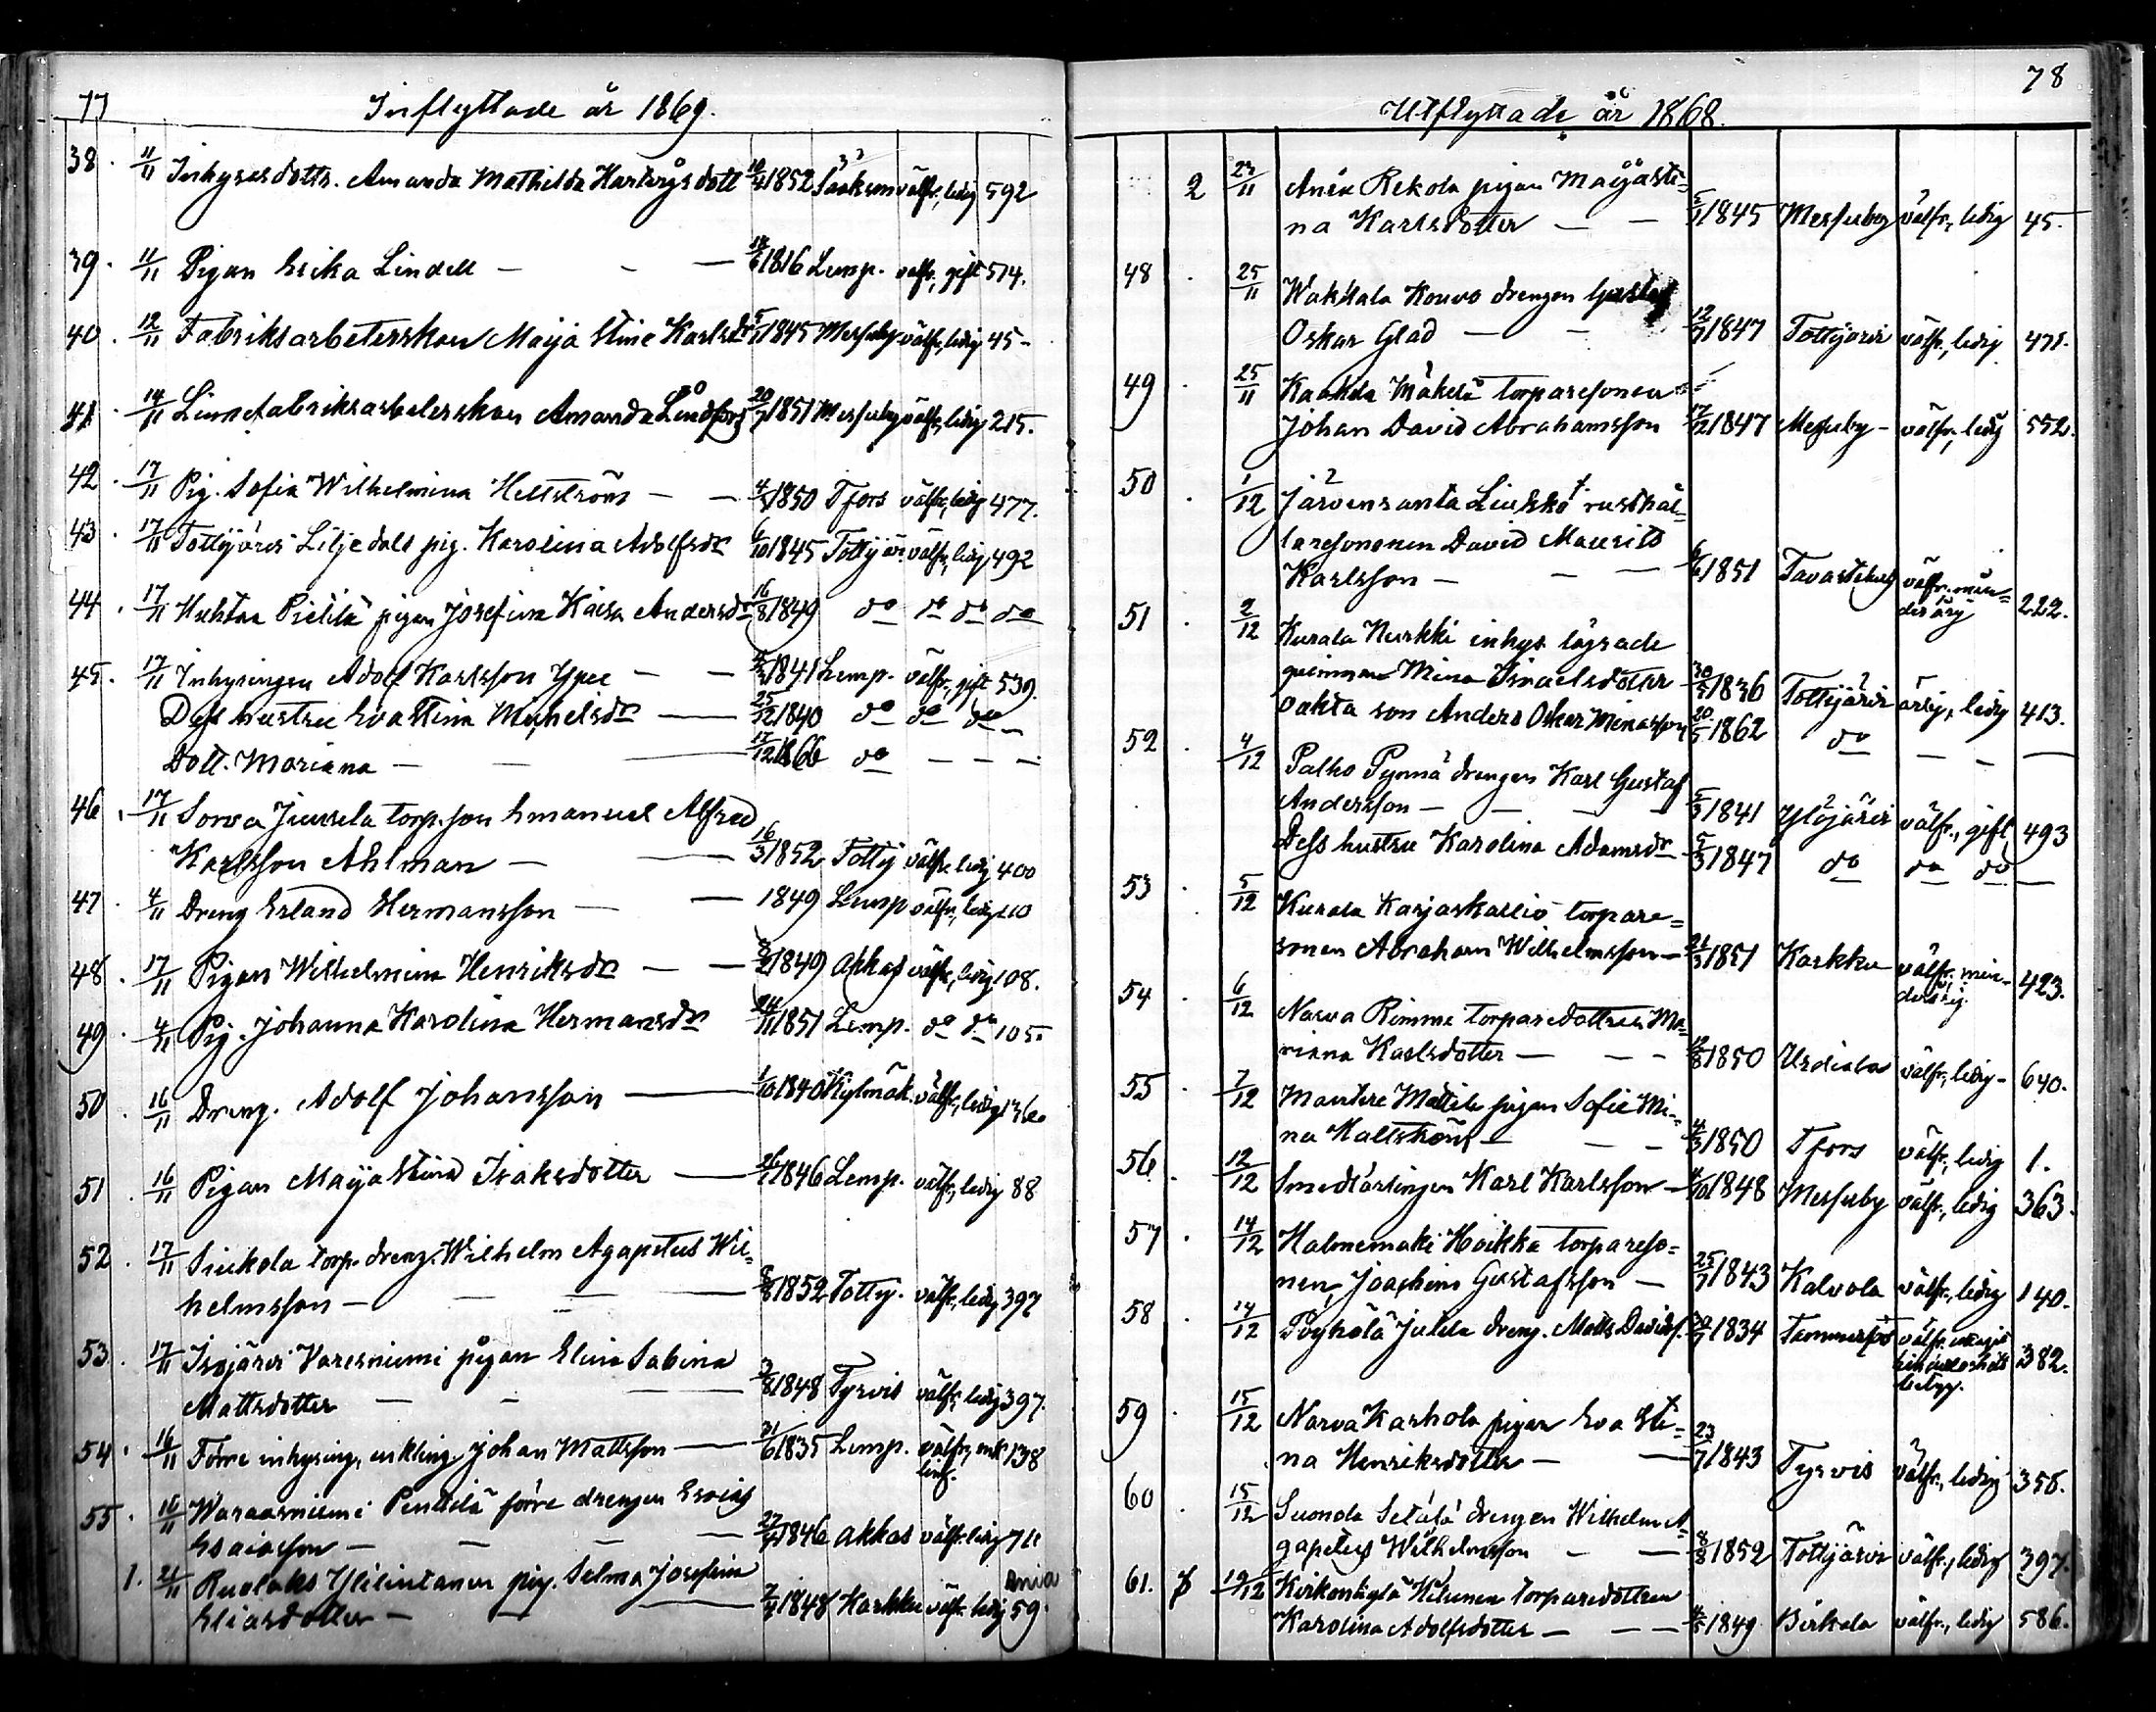 77
Inflyttade år 1869.
38. 11/11 Inhysesdottr. Amanda Mathilda Hartvigsdott 1852 Sääksm välfr., ledig 592
39. 11/11 Pigan Erika Lindell — 1816 Lemp. välfr., gift 514.
40. 12/11 Fabriksarbeterskan Maija Stina Karlsdr 5/7 1845 Messuby välfr., ledig 45-
41. 14/11 Linnefabriksarbeterskan Amanda Lindfors 20/7 1851 Messuby välfr., ledig 215.
42. 17/11 Pig. Sofia Wilhelmina Hellström — 1850 Tfors välfr., ledig 477.
43. 17/11 Tottijärvi Liljedals pig. Karolina Adolfsdr 6/10 1845 Tottijär. välfr., ledig 492
44. 17/11 Huhtaa Pietilä pigan Josefina Kaisa Andersdr 16/8 1849 do do do do
45. 17/11 Inhysingen Adolf Karlsson Ypee — 1841 Lemp. välfr., gift 539.
Dess hustru Eva Stina Mickelsdr — 25/12 1840 do do do
Dott. Mariana — 17/12 1866 do — — —
46. 17/11 Sorva Juusela torp.son Emanuel Alfred
Karlsson Ahlman — 16/3 1852 Totty välfr., ledig 400
47. 4/11 Dreng Erland Hermansson — 1849 Lemp välfr., ledig 110
48. 17/11 Pigan Wilhelmina Henriksdr — 1849 Akkas välfr., ledig 108.
49. 4/11 Pig. Johanna Karolina Hermansdr 24/11 1851 Lemp. do do 105.
50. 16/11 Dreng. Adolf Johansson — 1/10 1840 Kylmäk. välfr., ledig 136.
51. 16/11 Pigan Maija Stina Isaksdotter — 1846 Lemp. välfr., ledig 88
52. 17/11 Siukola torp. dreng. Wilhelm Agapetus Wil=
helmsson — 8/8 1852 Totty. välfr., ledig 397
53. 17/11 Isojärvi Varesniemi pigan Elina Sabina
Mattsdotter — 3/8 1848 Tyrvis välfr., ledig 397.
54. 16/11 Förre inhysing, enkling Johan Mattsson — 21/6 1835 Lemp. välfr., enk
ling. 138
55. 18/11 Waraarniemi Penttilä förre drengen Esaias
Esaiasson — 1846 Akkas välfr. ledig 71
1. 21/11 Ruolaks Ylilintanen pig. Selma Josefina
Eliasdotter — 1848 Karkku välfr. ledig 59. Ania
78
Utflyttade år 1868.
2 23/11 Ania Rekola pigan Maijasti=
na Karlsdotter — 5/7 1845 Messuby välfr., ledig 45.
48. 25/11 Wakkala Kouvo drengen Gustaf
Oskar Glad — 12/7 1847 Tottijärvi välfr., ledig 471.
49. 25/11 Kaakila Mäkelä torparesonen
Johan David Abrahamsson 17/12 1847 Messuby — välfr., ledig 552.
50. 1/12 Järvensanta Liukko rusthål=
laresonen David Maurits
Karlsson — 1851 Tavastehus välfr. min=
derårig 222.
51. 2/12 Kurala Nurkki inhys. lägrade
qvinnan Mina Ismaelsdotter 30/5 1836 Tottijärvi ärlig, ledig 413.
oäkta son Anders Oskar Minasson 20/5 1862 do — — —
52. 4/12 Palho Pynnä drengen Karl Gustaf
Andersson — 5/3 1841 Ylöjärvi välfr., gift 493
Dess hustru Karolina Adamsdr 5/3 1847 do do do —
53. 5/12 Kurala Karjaskallio torpare=
sonen Abraham Wilhelmsson — 21/3 1851 Karkku välfr. min-
derårig. 423.
54. 6/12 Narva Rimme torparedottren Ma=
riana Karlsdotter — 1850 Urdiala välfr., ledig — 640.
55. 7/12 Mantere Mattila pigan Sofie Mi=
na Hallström — 1850 Tfors välfr., ledig 1.
56. 12/12 Smedlärlingen Karl Karlsson — 1848 Messuby välfr., ledig 363.
57. 14/12 Halmemäki Hoikka torpareso=
nen Joachim Gustafsson — 25/7 1843 Kalvola välfr., ledig 140.
58. 14/12 Pöyhölä Julila dreng. Matts Davidss. 1834 Tammerfors välfr.
betyg. 382.
59. 15/12 Narva Karhola pigan Eva Sti=
na Henriksdotter — 23/7 1843 Tyrvis välfr., ledig 358.
60. 15/12 Suonola Setälä drengen Wilhelm A=
gapetus Wilhelmsson — 8/8 1852 Tottijärvi välfr., ledig 397.
61. 19/12 Kirkonkylä Hilunen torparedottren
Karolina Adolfsdotter — 1849 Birkala välfr., ledig 586.